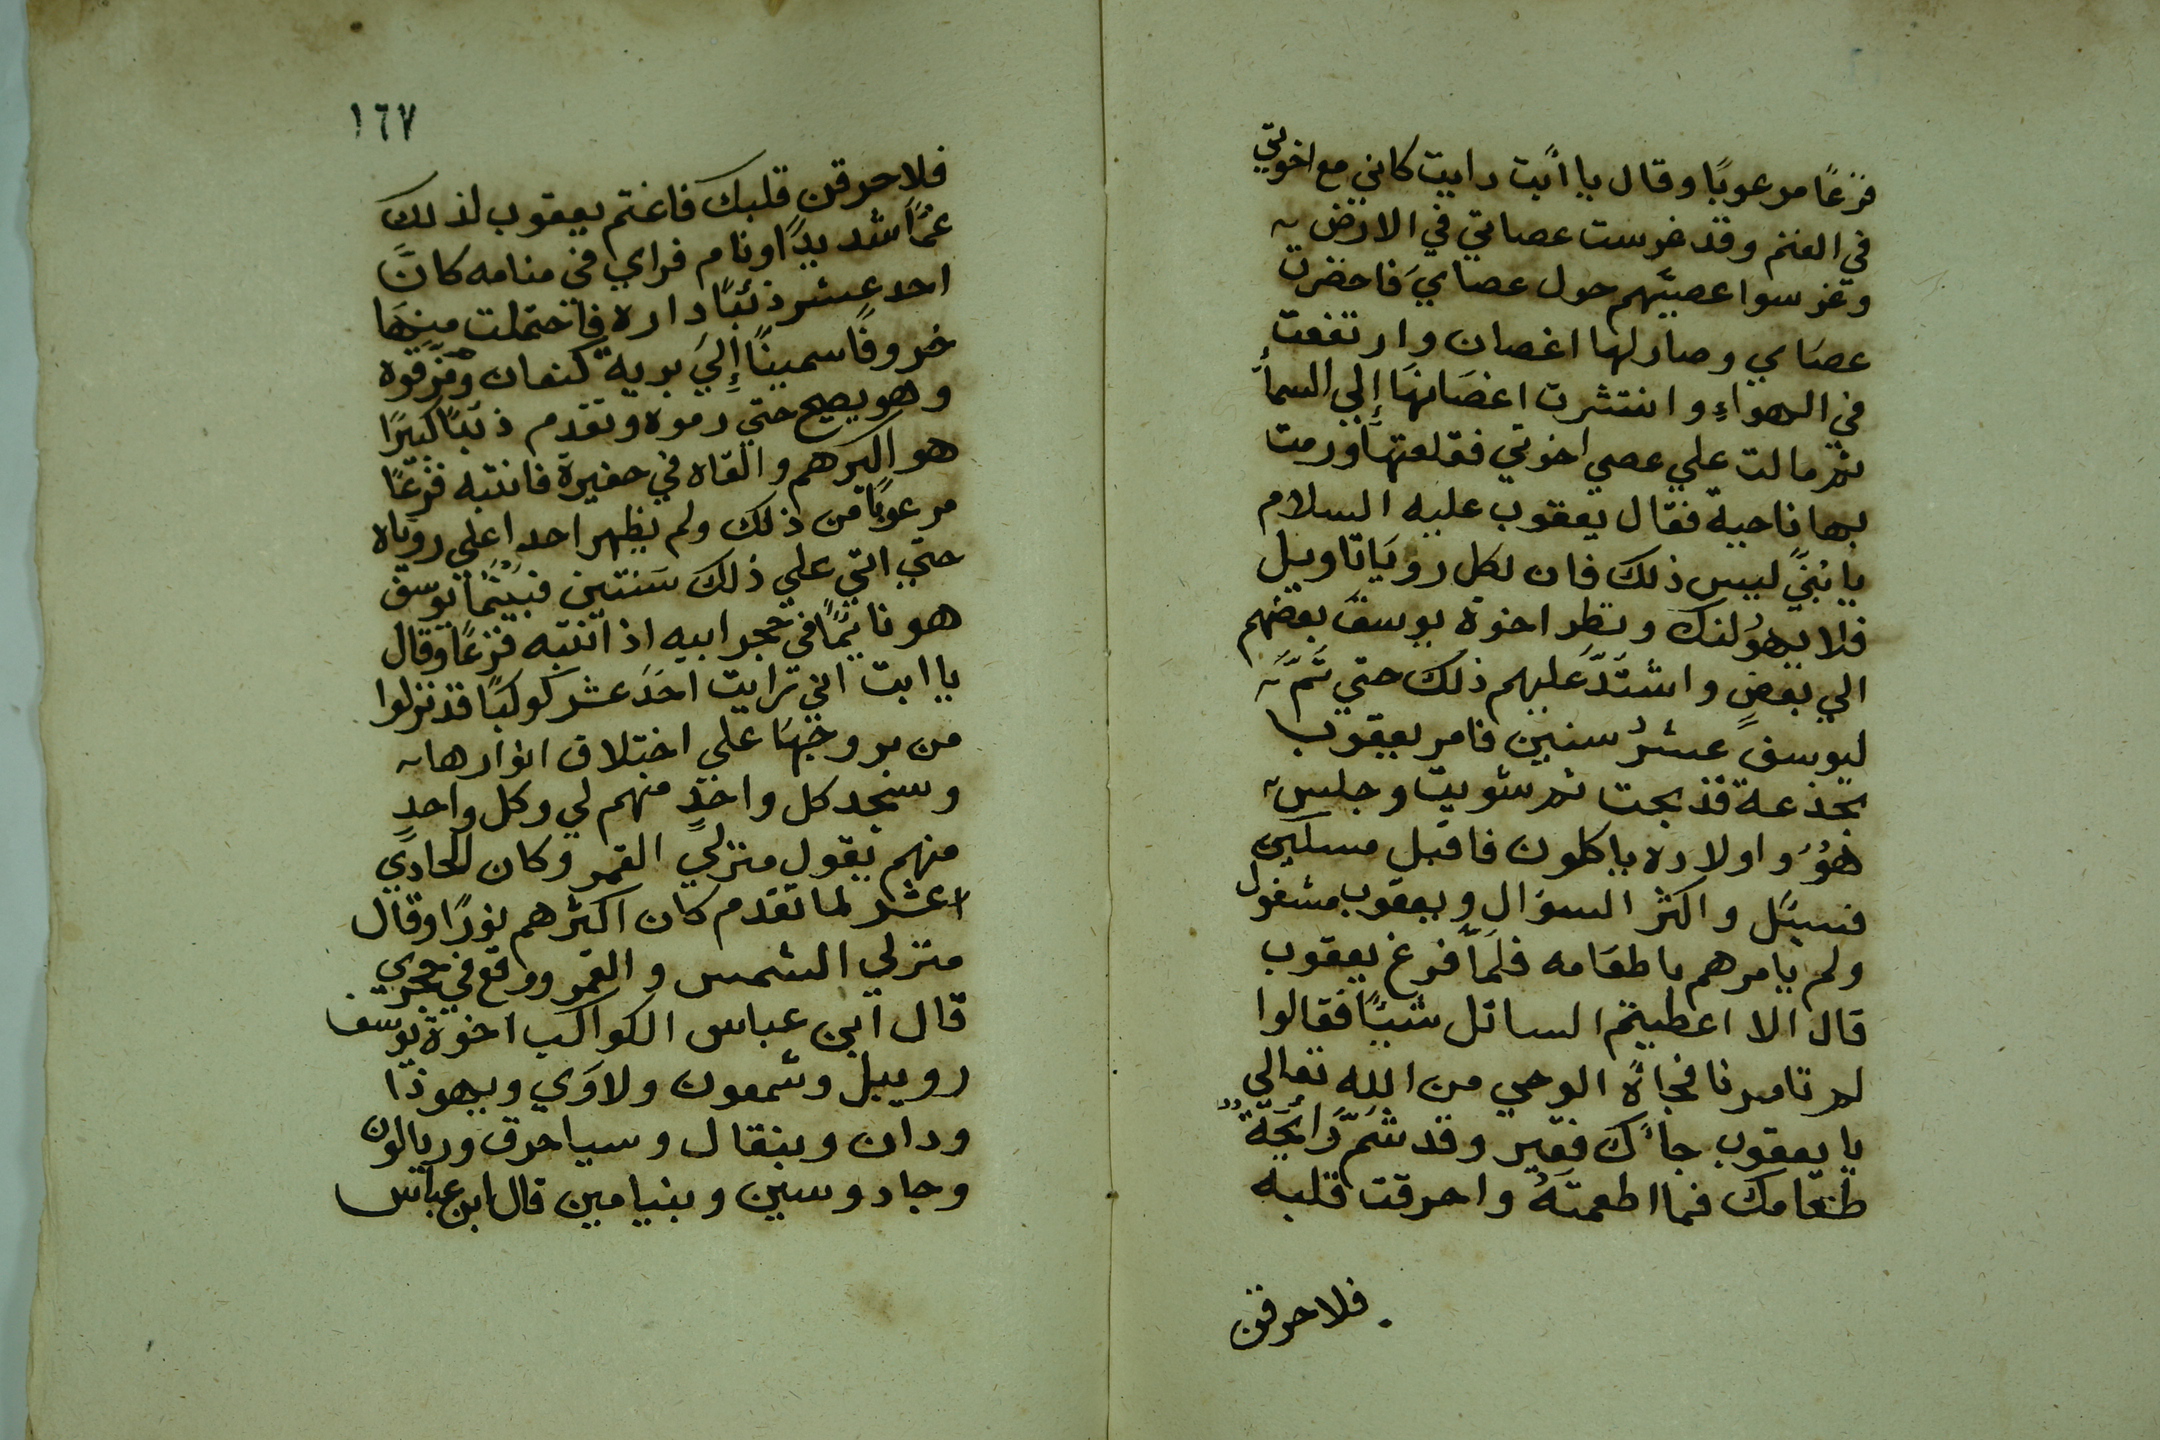 فزعًا مرعوبًا وقال يا ابت رايت كاني مع اخوتي
في الغنم وقد غرست عصاتي في الارض
وغرسوا عصيّهم حول عصايَ فاخضرت
عصاي وصار لها اغصان وارتفعت
في الهواءِ وانتشرت اغصانها إلي السمأ
ثم مالت علي عصي اخوتي فقلعتها ورمت
بها ناحية فقال يعقوب عليه السلام
يا بُنيَّ ليس ذلك فان لكل رويا تاويل
فلا يهوُلنك ونظر اخوة يوسف بعضهم
الي بعضٍ واشتدَّ عليهم ذلك حتي تمَّ
ليوسف عشرُ سنين فامر يعقوب
بجذعة فذبحت ثم شويت وجلس
هوُ واولاده ياكلون فاقبل مسكين
فسئل واكثر السؤال ويعقوب مشغول
ولم يامرهم باطعامه فلمّا فرغ يعقوب
قال الا اعطيتم السائل شيئًا فقالوا
لم تامرنا فجاه الوحي من الله تعالي
يا يعقوب جاك فقير وقد شمَّ رايحة
طعامك فما اطعمته واحرقت قلبه
فلاحرقن
١٦٧
فلاحرقن قلبك فاغتم يعقوب لذلك
غمًا شديدًا ونام فراي في منامه كانَّ
احد عشر ذئبًا داره فاحتملت منها
خروفًا سمينًا إلي برية كنعان ومزقوه
وهو يصيح حتي رموه وتقدم ذئبًا كبيرًا
هو اكبرهم والقاه في حفيرة فانتبه فزعًا
مرعوبًا من ذلك ولم يظهر احدا علي روياه
حتي اتي علي ذلك سنتين فبينما يوسف
هو نايمًا في حجر ابيه اذ انتبه فزعًا وقال
يا ابت اني رايت احد عشر كوكبًا قد نزلوا
من بروجها علي اختلاف انوارها
وسجد كل واحدٍ منهم لي وكل واحدٍ
منهم يقول منزلي القمر وكان الحادي
عشر لما تقدم كان اكثرهم نورًا وقال
منزلي الشمس والقمر ووقع في حجري
قال ابن عباس الكواكب اخوة يوسف
روبيل وشمعون ولاوي ويهوذا
ودان وبنقال وسياحرق وربالون
وجاد وسين وبنيامين قال ابن عباس